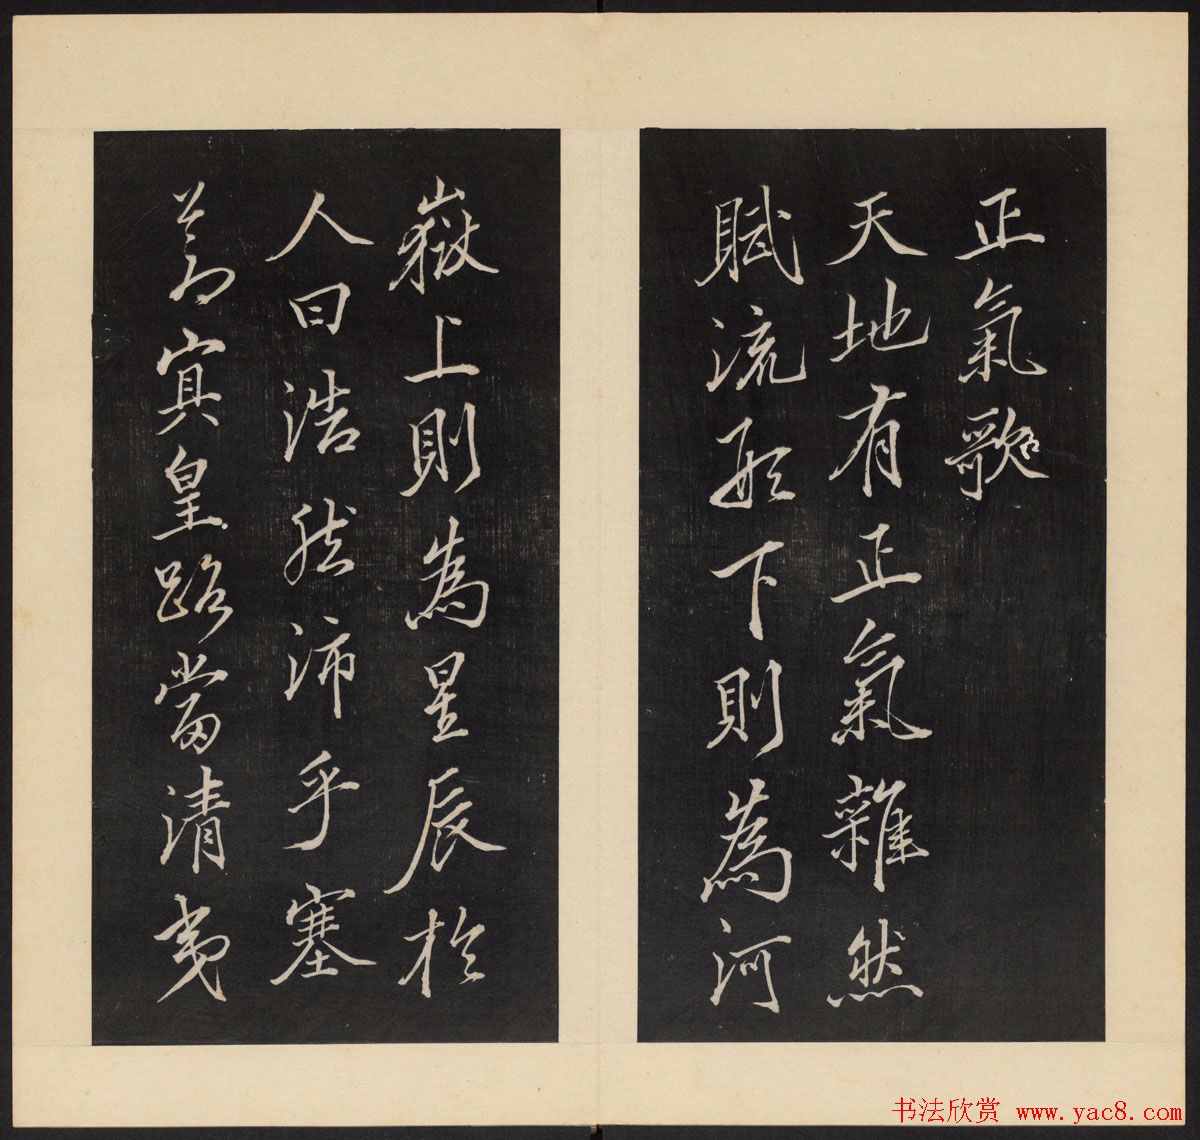 正氣歌
天地有正氣雜然
賦流形下則為河
嶽上則為星辰於
人曰浩然沛乎塞
蒼冥皇路當清夷
书法欣赏 www.yac8.com